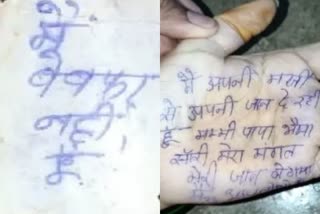 मैं
बेवफा
नहीं
हूं
मैं अपनी मर्जी
से अपनी जान दे रही
हूं मम्मी पापा भैया
सॉरी मेरा
मेरी जान